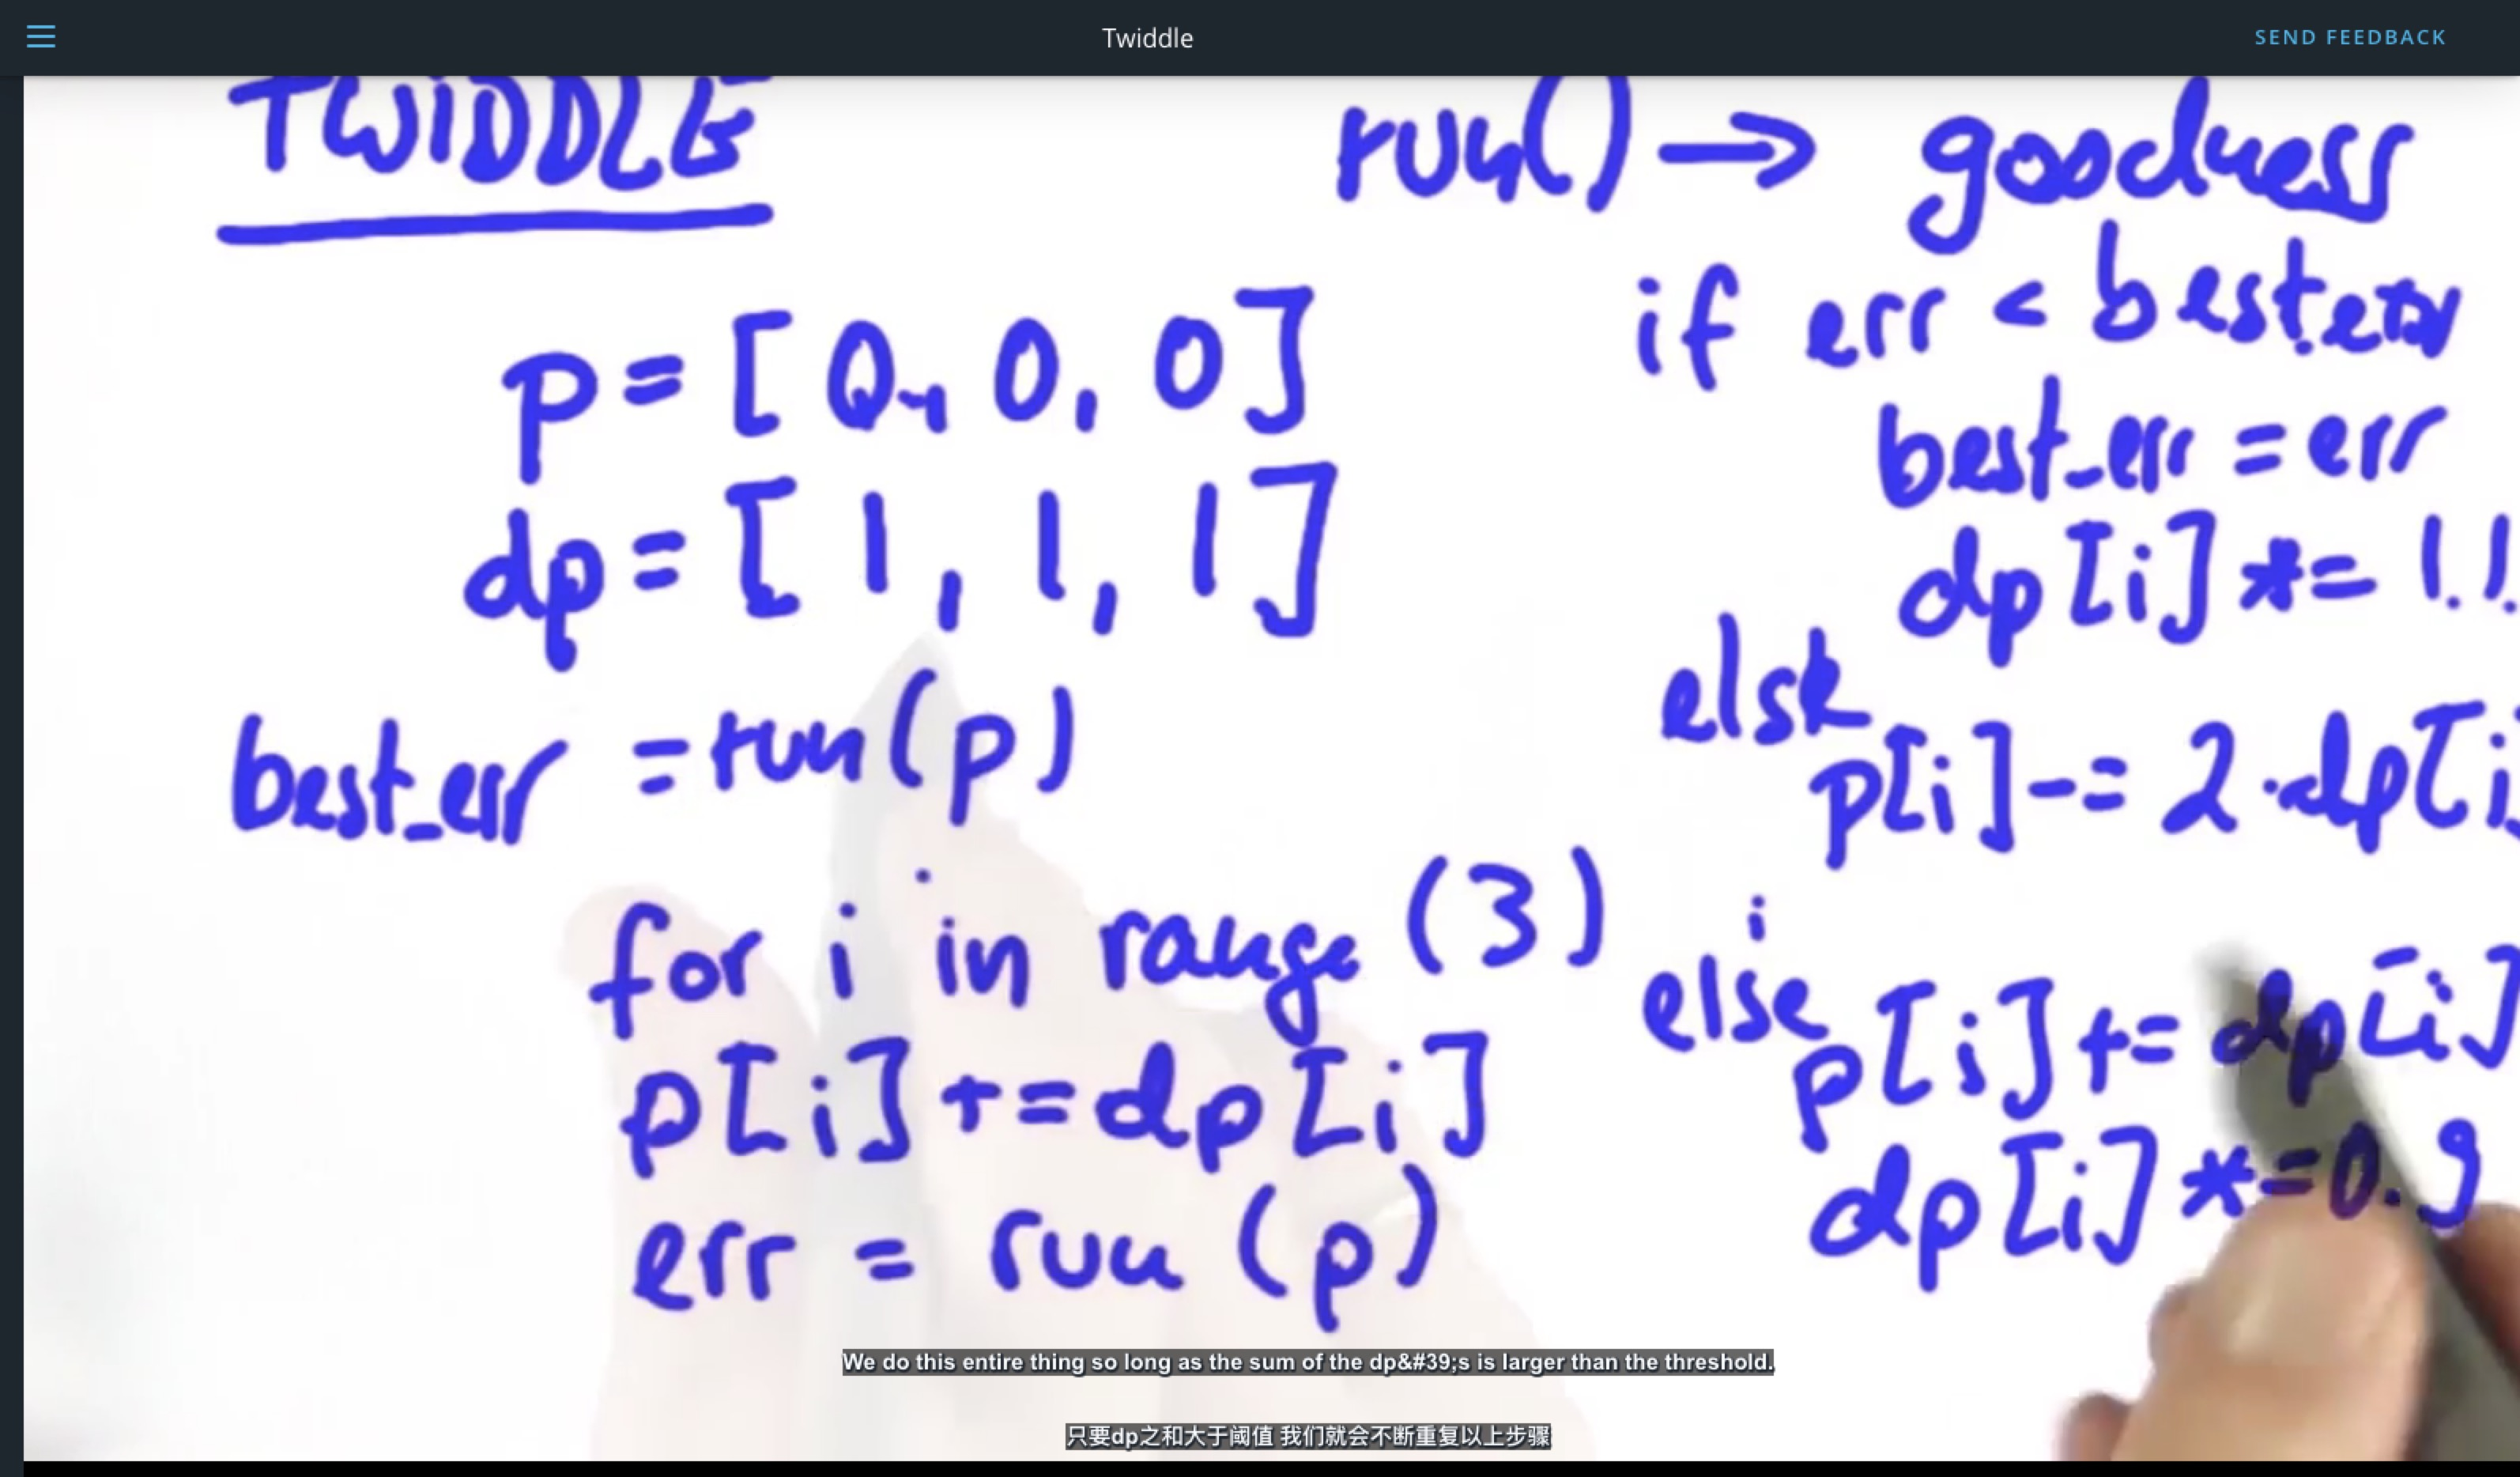 Twiddle
SEND FEEDBACK
TWIDDLE
p = [0, 0, 0]
dp = [1, 1, 1]
best_err = run(p)
for i in range (3)
p[i] += dp[i]
err = run (p)
run() → goodness
if err < best_err
best_err = err
dp[i] *= 1.1
else
p[i] -= 2·dp[i]
i
else
p[i] += dp[i]
dp[i] *= 0.9
We do this entire thing so long as the sum of the dp&#39;s is larger than the threshold.
只要dp之和大于阈值 我们就会不断重复以上步骤